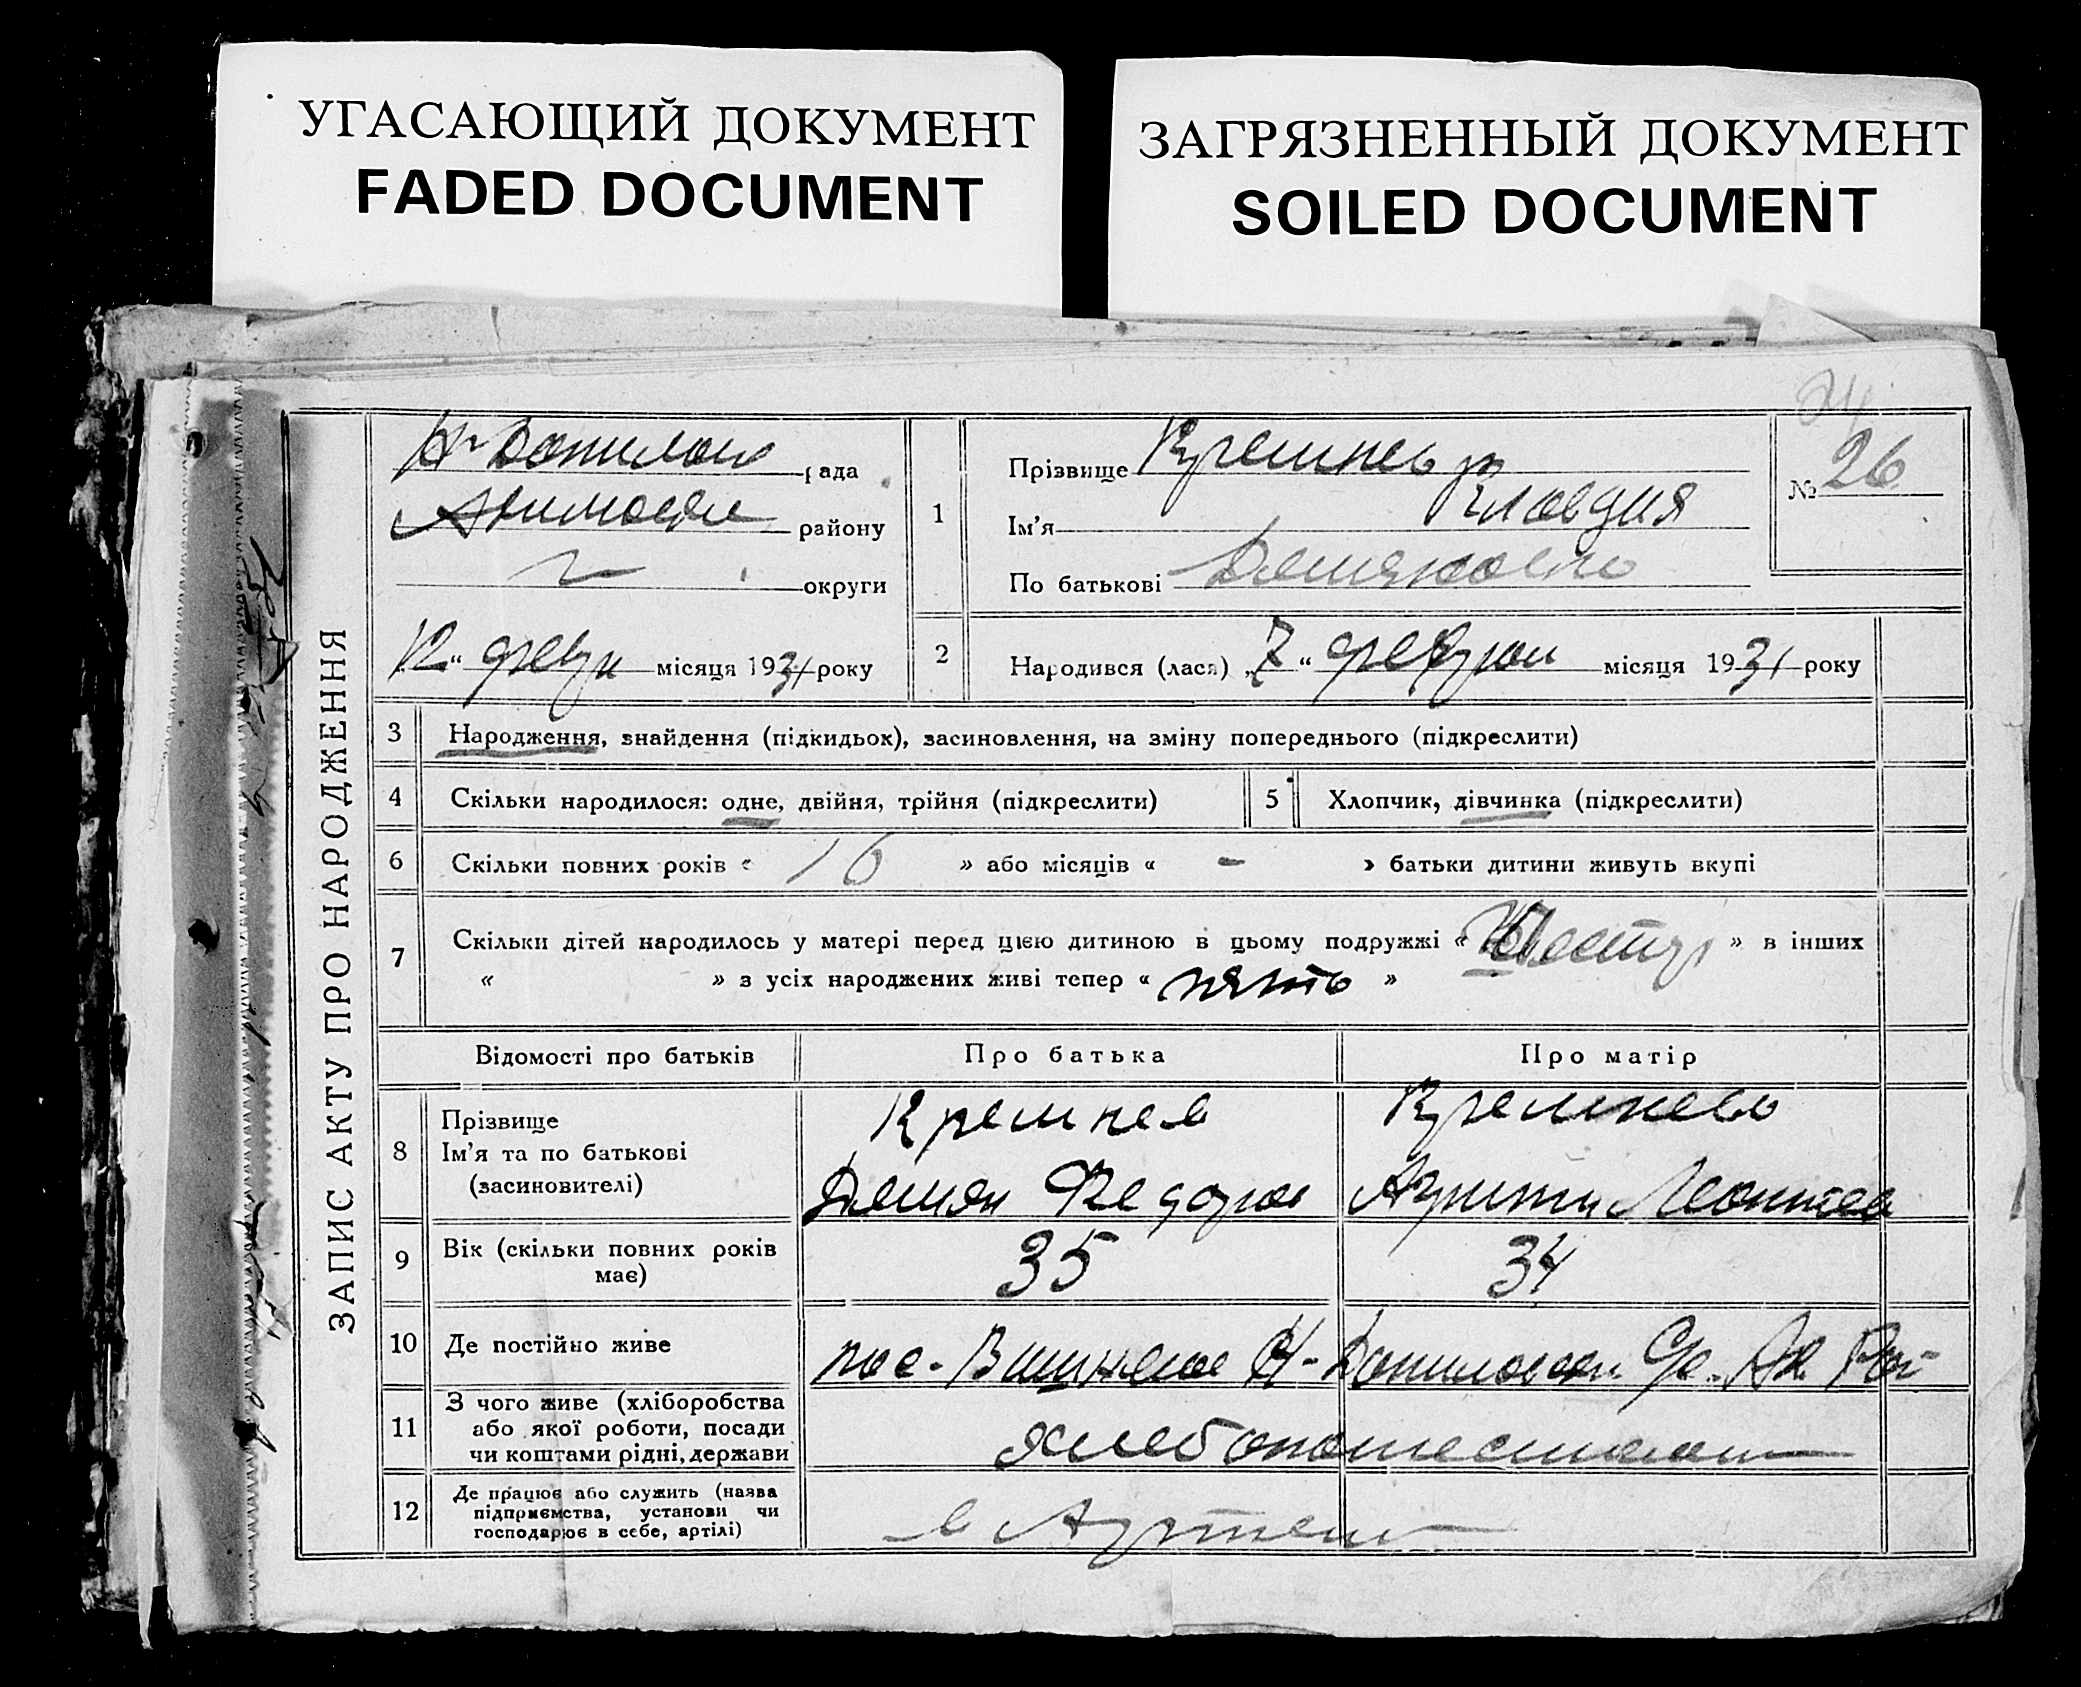 УГАСАЮЩИЙ ДОКУМЕНТ
FADED DOCUMENT
ЗАГРЯЗНЕННЫЙ ДОКУМЕНТ
SOILED DOCUMENT
ЗАПИС АКТУ ПРО НАРОДЖЕННЯ
рада
району
округи
12 " февр місяця 1931 року
1
Прізвище Кремнева
Ім'я Клавдия
По батькові Демяновна
№ 26
2
Народився (лася) „7 " феврал місяця 1931 року
3 Народження, знайдення (підкидьох), засиновлення, на зміну попереднього (підкреслити)
4 Скільки народилося: одне, двійня, трійня (підкреслити)
5 Хлопчик, дівчинка (підкреслити)
6 Скільки повних років « 16 » або місяців « - » батьки дитини живуть вкупі
7 Скільки дітей народилось у матері перед цією дитиною в цьому подружжі « » в інших
« » з усіх народжених живі тепер « пять »
Відомості про батьків Про батька Про матір
8 Прізвище Кремнев Кремнева
Ім'я та по батькові
(засиновителі) Демян Федоров
9 Вік (скільки повних років
має) 35 34
10 Де постійно живе пос-
11 З чого живе (хліборобства
або якої роботи, посади
чи коштами рідні, держави
хлебопашеством
12 Де працює або служить (назва
підприємства, установи чи
господарює в себе, артілі)
в Артели